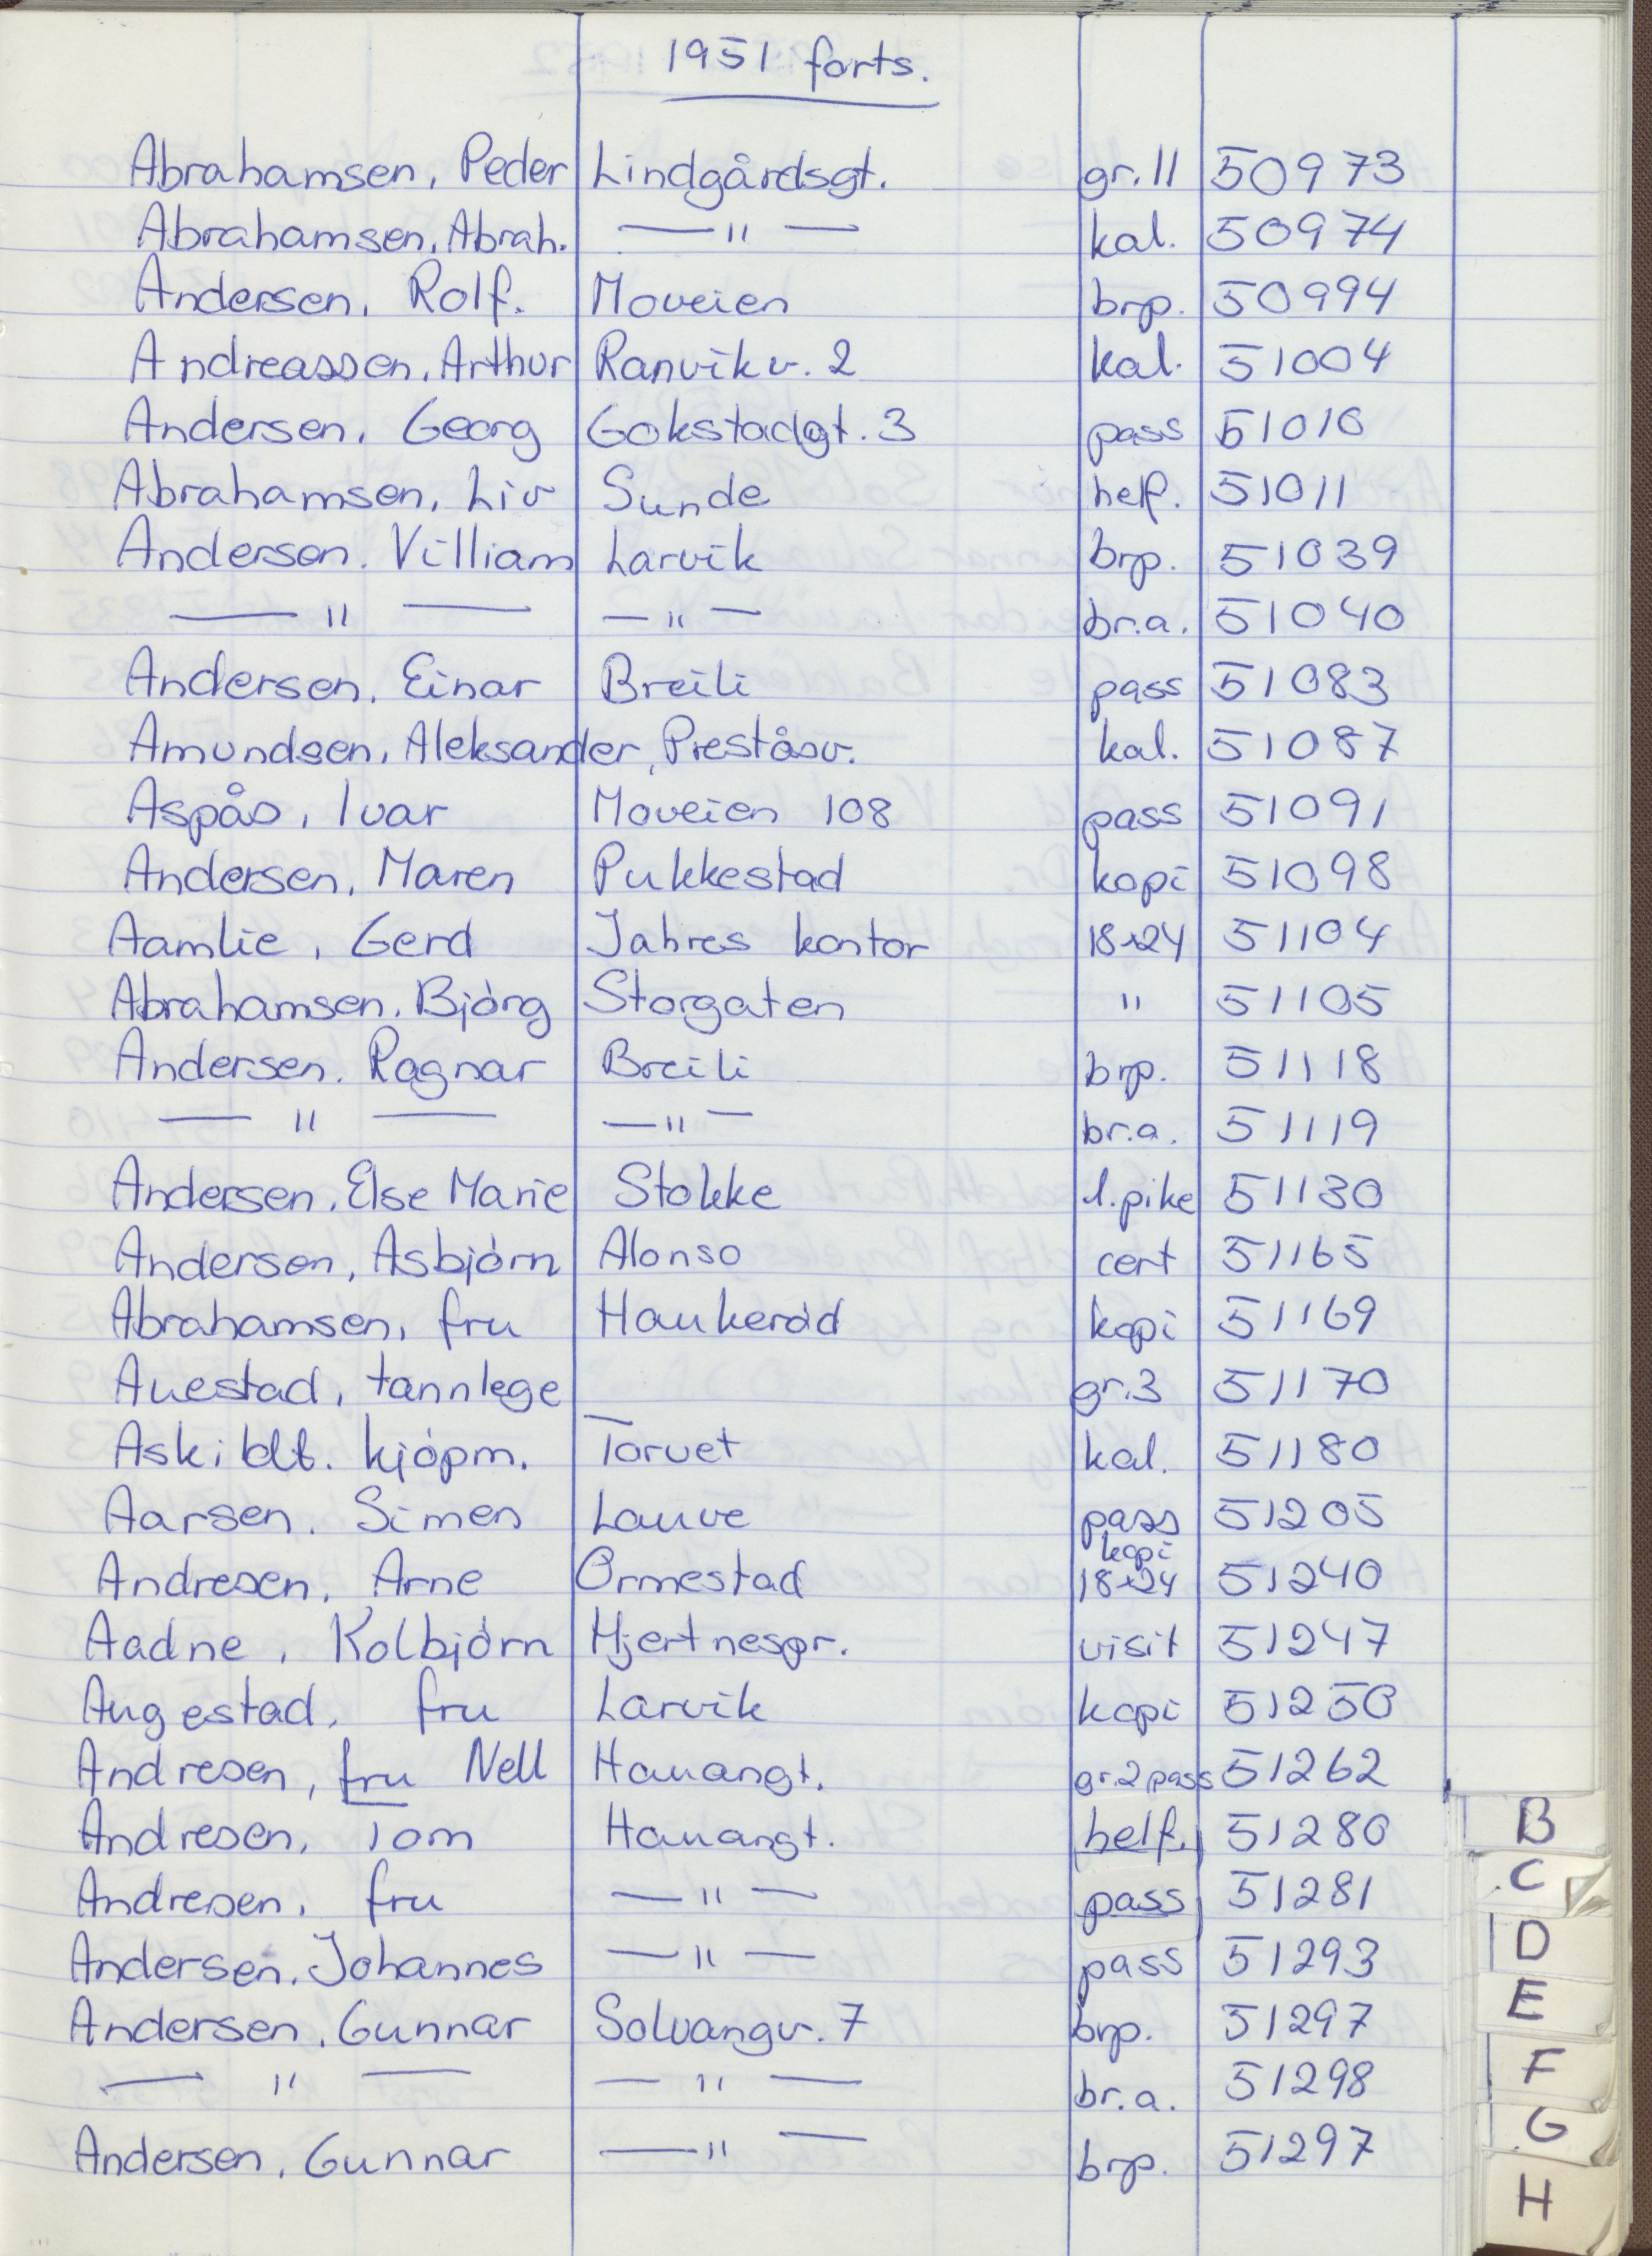 1951 forts.
Abrahamsen, Peder Lindgårdsgt. gr. 11 50973
Abrahamsen, Abrah. — " — kal. 50974
Andersen, Rolf. Moveien brp. 50994
Andreassen, Arthur Ranvikv. 2 kal. 51004
Andersen, Georg Gokstadgt. 3 pass 51010
Abrahamsen, Liv Sunde helf. 51011
Andersen. Villiam Larvik brp. 51039
— " — — " — br.a. 51040
Andersen, Einar Breili pass 51083
Amundsen, Aleksander, Preståsv. kal. 51087
Aspås, Ivar Moveien 108 pass 51091
Andersen, Maren Pukkestad kopi 51098
Aamlie, Gerd Jahres kontor 18x24 51104
Abrahamsen. Bjórg Storgaten " 51105
Andersen. Ragnar Breili brp. 51118
— " — — " — br.a. 51119
Andersen, Else Marie Stokke l.pike 51130
Andersen, Asbjórn Alonso cert 51165
Abrahamsen, fru Haukeród kopi 51169
Auestad, tannlege gr.3 51170
Askibt. kjópm. Torvet kal. 51180
Aarsen. Simen Lauve pass 51205
Andresen, Arne Ormestad kopi 18x24 51240
Aadne, Kolbjórn Hjertnespr. visit 51247
Augestad, fru Larvik kopi 51250
Andresen, fru Nell Hauangt. gr.2 pass 51262
Andresen, Tom Hauangt. helf. 51280
Andresen, fru — " — pass 51281
Andersen, Johannes — " — pass 51293
Andersen, Gunnar Solvangv. 7 brp. 51297
— " — — " — br.a. 51298
Andersen, Gunnar — " — brp. 51297
B
C
D
E
F
G
H